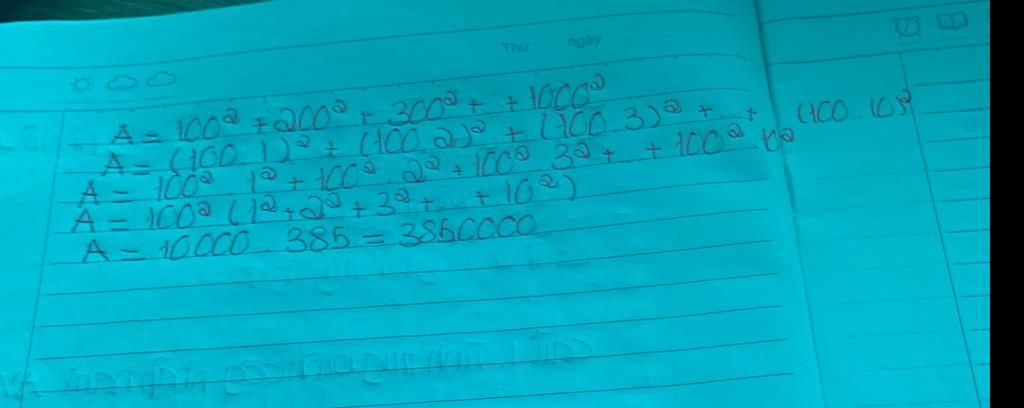 Thứ ngày
A = 100² + 200² + 300² + + 1000²
A = (100. 1)² + (100. 2)² + (100. 3)² + ... + (100. 10)²
A = 100². 1² + 100². 2² + 100². 3² + ... + 100². 10²
A = 100² (1² + 2² + 3² + ... + 10²)
A = 10000. 385 = 3850000